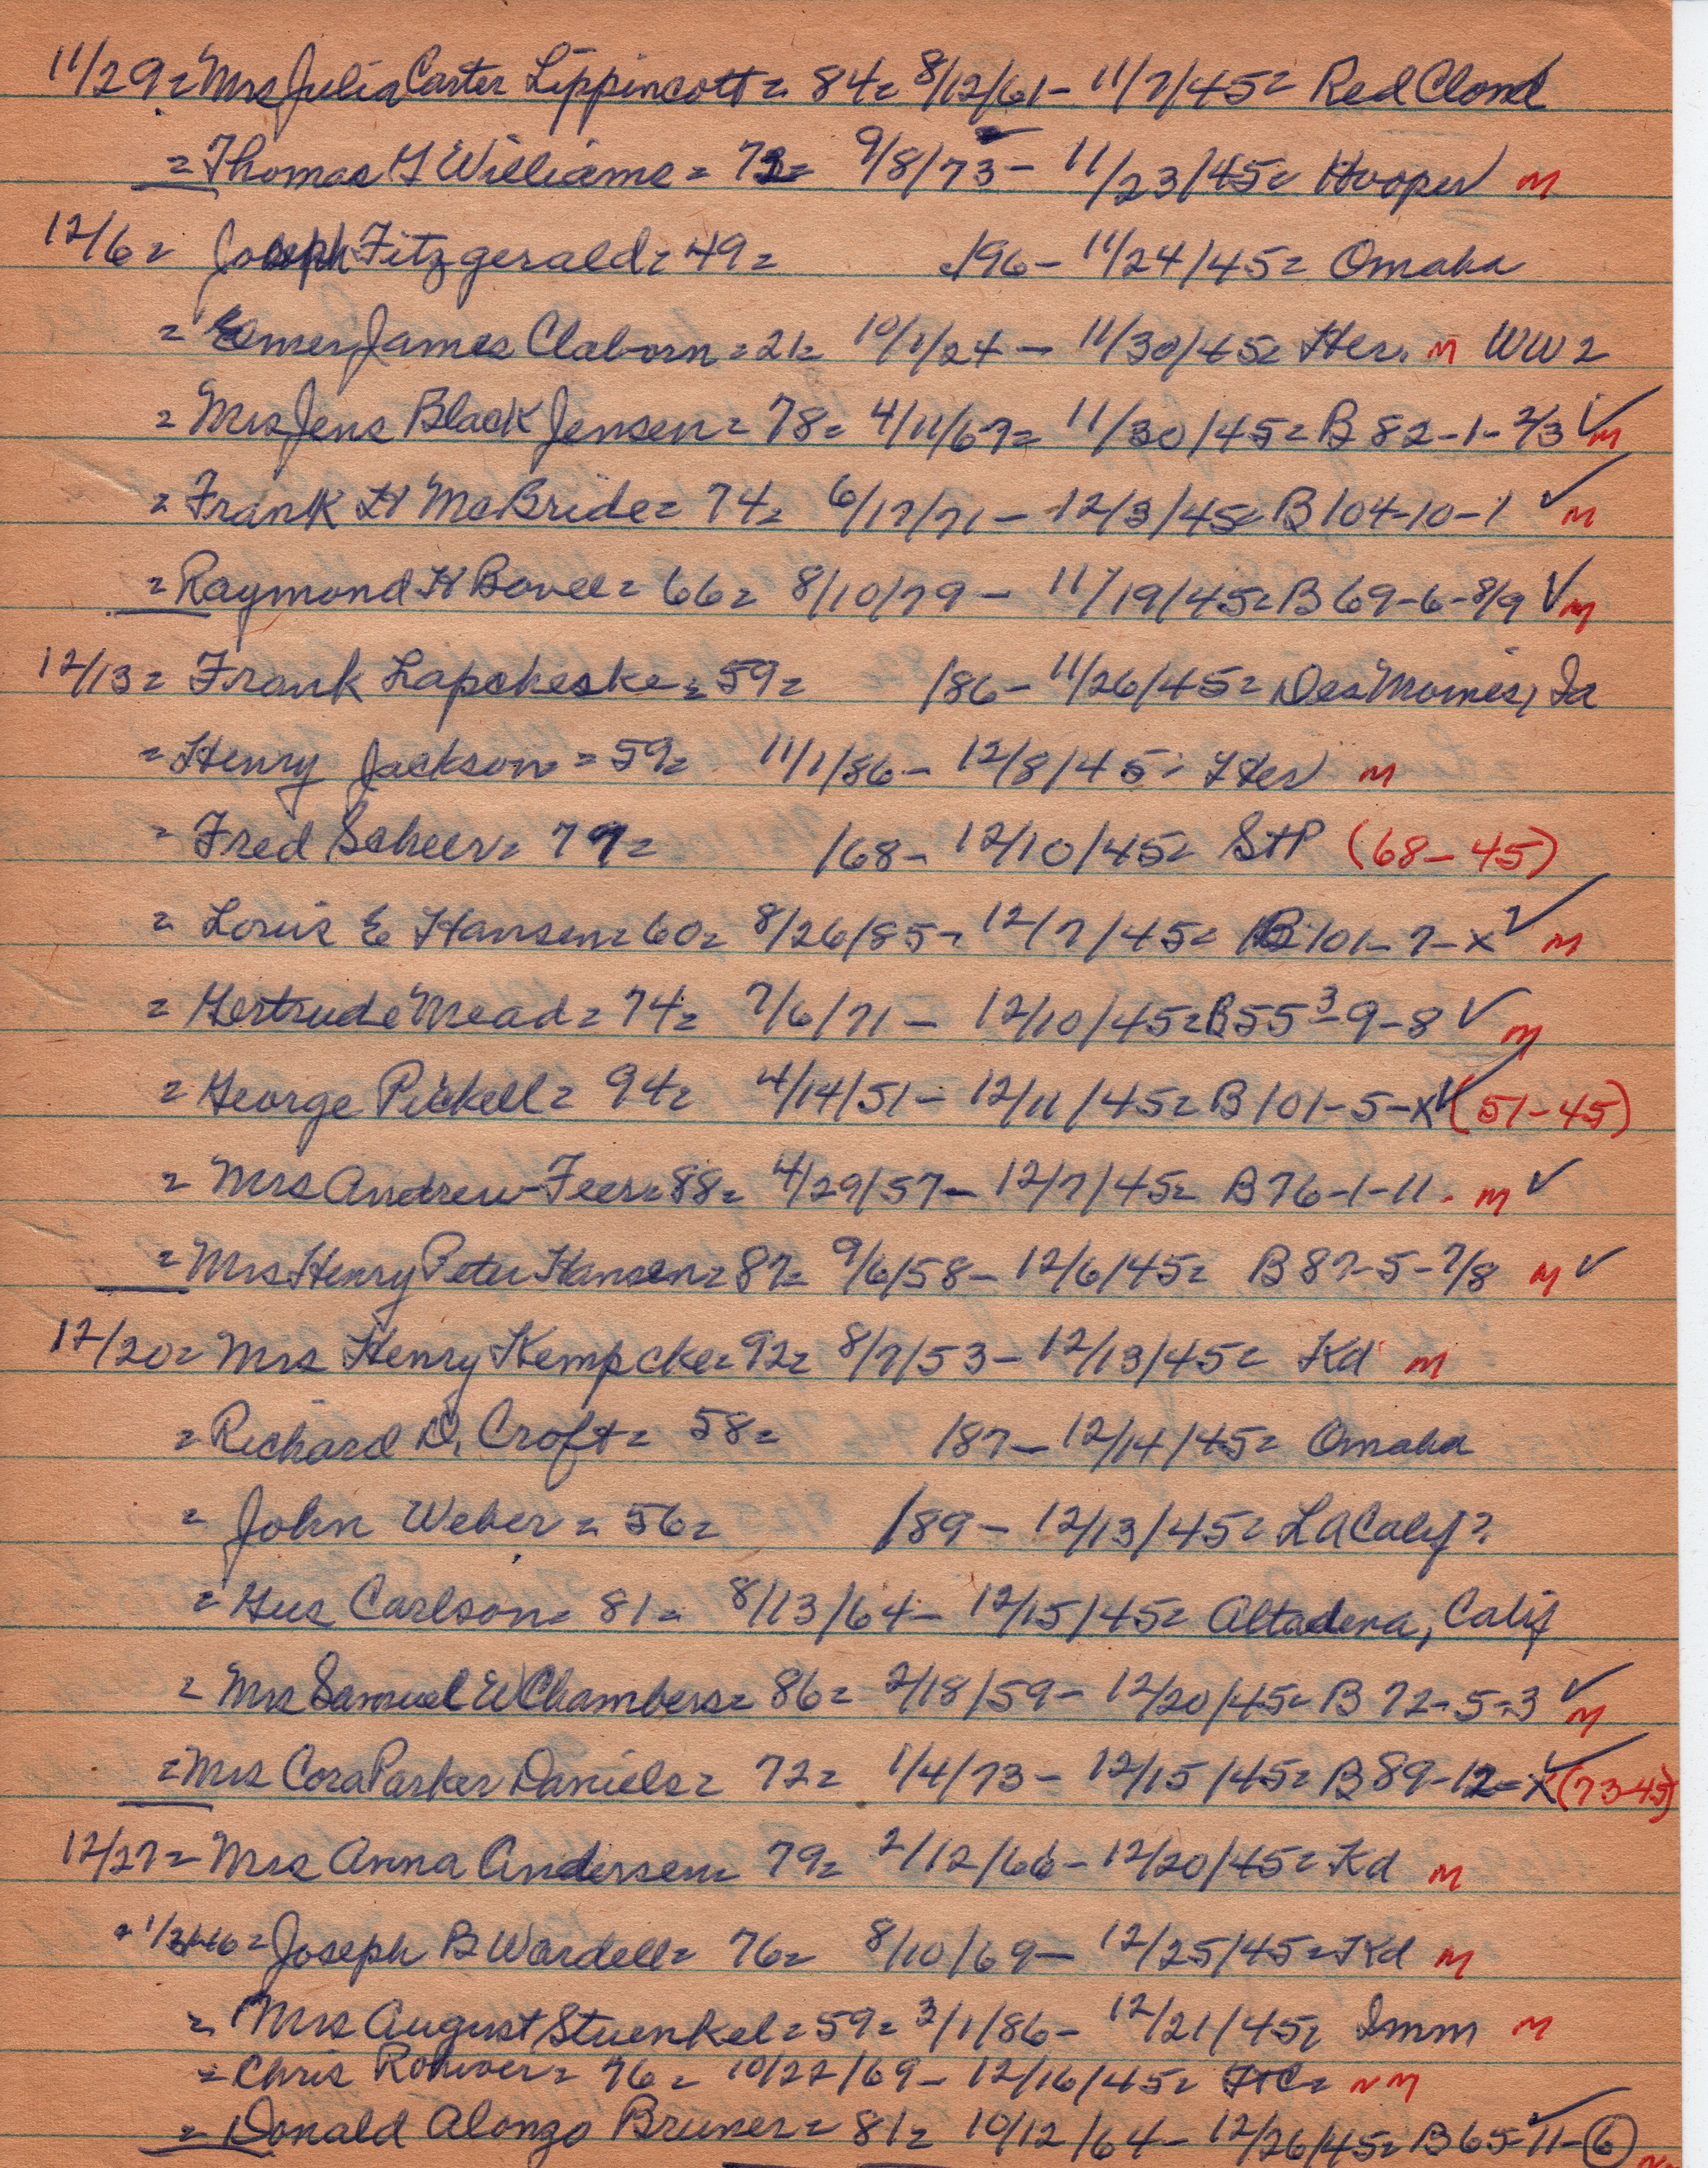 11/29= Mrs Julia Carter Lippincott= 84= 8/12/61- 11/7/45= Red Cloud
= Thomas G Williams = 72= 9/8/73- 11/23/45= Hooper M
12/6= Joseph Fitzgerald= 49= /96- 11/24/45= Omaha
= Elmer James Claborn =21= 10/1/24 - 11/30/45= Her. M WW2
= Mrs Jens Black Jensen= 78= 4/11/67= 11/30/45= B 82-1-2/3 ✓ M
= Frank H McBride= 74= 6/17/71- 12/3/45= B 104-10-1 ✓ M
= Raymond H Bovee= 66= 8/10/79 - 11/19/45= B 69-6-8/9 ✓ M
12/13= Frank Lapcheske= 59= /86- 11/26/45= Des Moines, Ia
= Henry Jackson = 59= 11/1/86- 12/8/45= Her M
= Fred Scheer= 77= /68- 12/10/45= StP (68-45)
= Louis E Hansen= 60= 8/26/85- 12/7/45= B 101-7-x ✓ M
= Gertrude Mead= 74= 7/6/71- 12/10/45= B 55 3-9-8 ✓ M
= George Pickell= 94= 4/14/51- 12/11/45= B 101-5-x ✓ (51-45)
= Mrs Andrew Feer= 88= 4/29/57- 12/7/45= B 76-1-11. M ✓
= Mrs Henry Peter Hansen= 87= 9/6/58- 12/6/45= B 87-5-7/8 M ✓
12/20= Mrs Henry Kempcke= 92= 8/7/53- 12/13/45= Kd M
= Richard D. Croft= 58= /87- 12/14/45= Omaha
= John Weber = 56= /89- 12/13/45= LA Calif?
= Gus Carlson= 81= 8/13/64- 12/15/45= Altadena, Calif
= Mrs Samuel W Chambers= 86= 2/18/59- 12/20/45= B 72-5-3 ✓ M
= Mrs Cora Parker Daniels= 72= 1/4/73- 12/15/45= B 89-12-x ✓ (73-45)
12/27= Mrs Anna Andersen= 79= 2/12/66- 12/20/45= Kd M
= 1/3/46= Joseph B Wardell= 76= 8/10/69- 12/25/45= Kd M
= Mrs August Stuenkel= 59= 3/1/86- 12/21/45= Imm M
= Chris Rohwer= 76= 10/22/69- 12/16/45= NM
= Donald Alonzo Bruner= 81= 10/12/64- 12/26/45= B 65-11-6 ✓